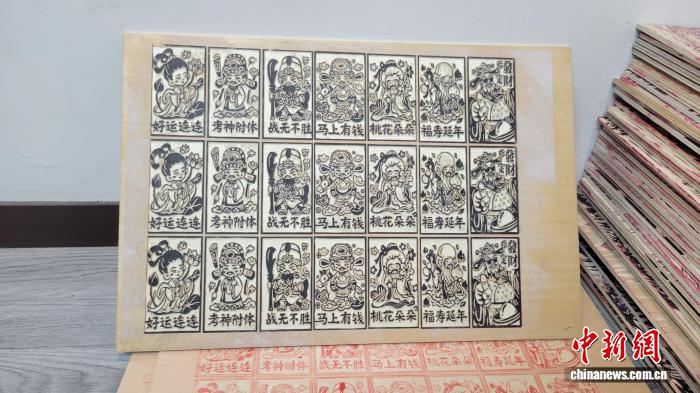 發財
好运连连 考神附体 战无不胜 马上有钱 桃花朵朵 福寿延年
發財
好运连连 考神附体 战无不胜 马上有钱 桃花朵朵 福寿延年
發財
好运连连 考神附体 战无不胜 马上有钱 桃花朵朵 福寿延年
好运连连 考神附体 战无不胜 马上有钱 桃花朵朵 福寿延年
中新網
chinanews.com